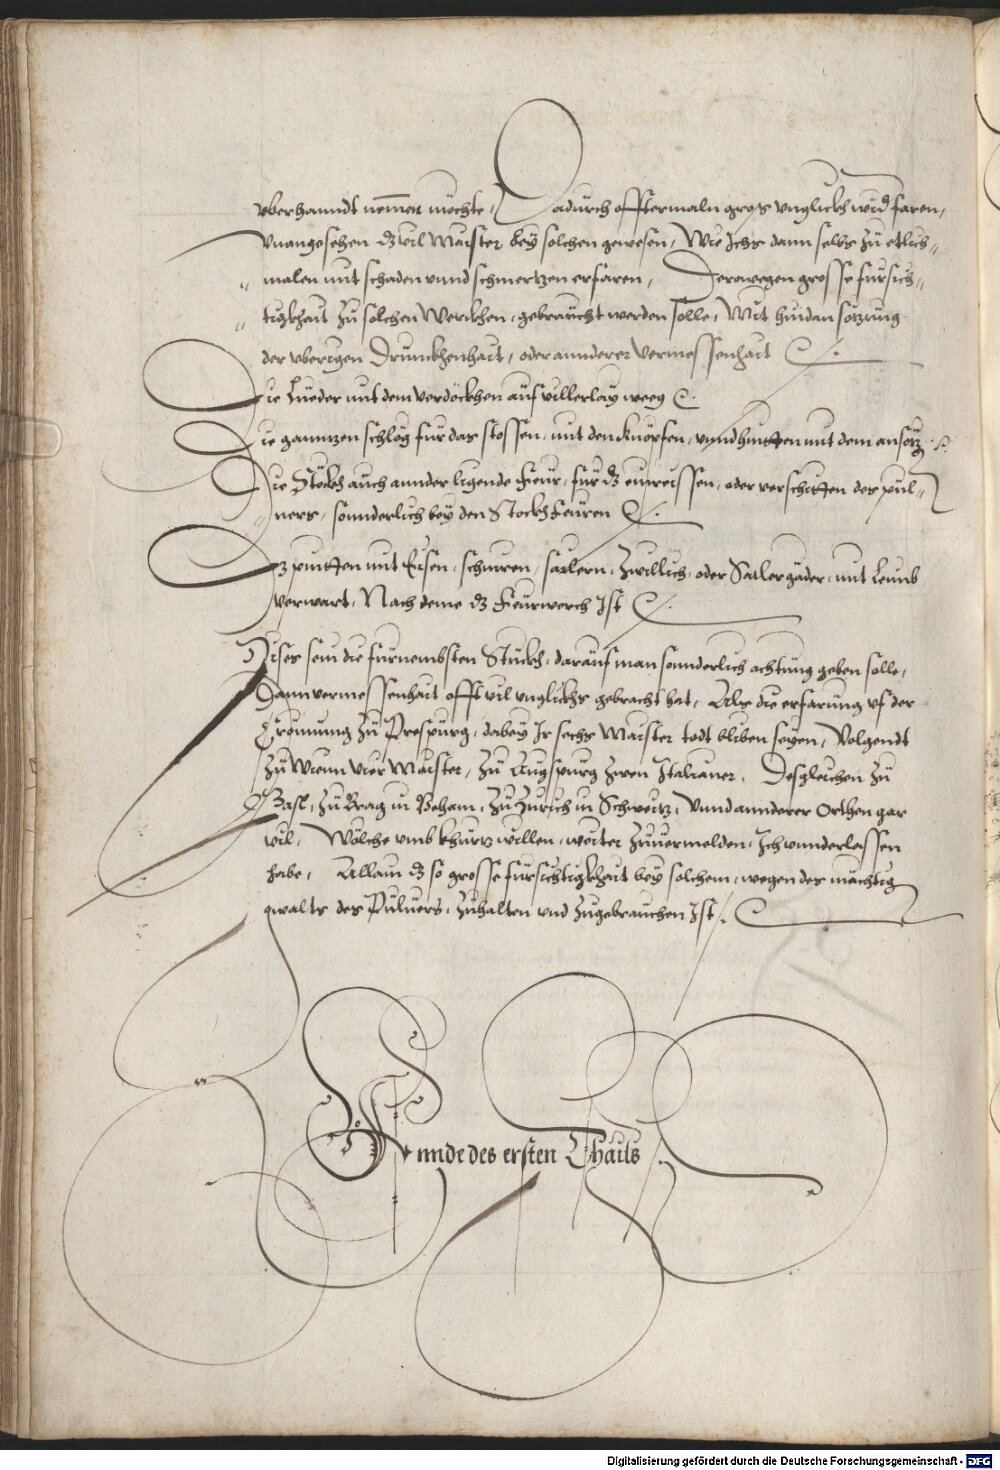 vberhanndt nemmen möchte, Dadurch offtermaln gross vnglückh widfaren,
vnangesehen dz vil Maister bey solchen gewesen, Wie Ichs dann selbs zů etlich=
=malen mit schaden vnnd schmertzen erfaren, Derowegen grosse fürsich=
=tigkhait zů solchen Werckhen, gebraucht werden solle, Mit hindan sötzung
der vberigen Drunckhenhait, oder annderer Vermessenhait
Die Lüeder mit dem verdöckhen auf villerlay weeg
Die ganntzen schleg für das stossen, mit den Knöpfen, vnnd hütten mit dem ansötz
Die Stöckh auch annder ligende Feur, für dz einreissen, oder verschitten des pul=
=uers, sonnderlich bey den Stockh Feüren
Dz putten mit Eisen, schnüren, sailern, Zwillich, oder Sailergäder, mit Leimb
verwart, Nach deme dz Feürwerch Ist
Dises sein die fürnembsten Stückh, darauf man sonnderlich achtung geben solle,
Dann vermessenhait offt vil vnglückhs gebracht hat, Als die erfarung vf der
Crönnung zů Prespurg, dabey Ir sechs Maister todt bliben seyen, Volgendt
zů Wienn vier Maister, zů Augspurg zwen Italianer, Desgleichen zů
Basl, zů Brag in Beham, zů Zürich in Schweitz, vnnd annderer Orthen gar
vil, Wölche vmb khürtz willen, weiter zůuermelden, Ich vnnderlassen
habe, Allain dz so grosse fürsichtigkhait bey solchem, wegen des mächtig
gwalts des Puluers, zůhalten vnd zůgebrauchen Ist
Ennde des ersten Thails
Digitalisierung gefördert durch die Deutsche Forschungsgemeinschaft - DFG